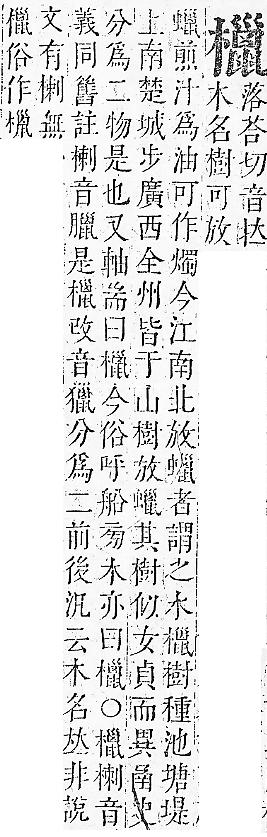 㯿
落荅切音拉
木名樹可放
蠟煎汁為油可作燭今江南北放蠟者謂之水㯿樹種池塘堤
上南楚城步廣西全州皆于山樹放蠟其樹似女貞而異函史
分爲二物是也又軸耑曰㯿今俗呼船旁木亦曰㯿○㯿楋音
義同舊註楋音臘是㯿改音獵分爲二前後汎云木名𠀤非說
文有楋無
㯿俗作